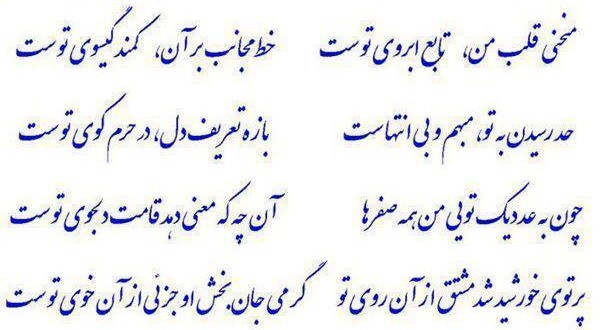 منحنی قلب من، تابع ابروی توست خط مجانب بر آن، کمند گیسوی توست
حد رسیدن به تو، مبهم و بی انتهاست بازه تعریف دل، در حرم کوی توست
چون به عدد یک تویی من همه صفرها آن چه که معنی دهد قامت دلجوی توست
پرتوی خورشید شد مشتق از آن روی تو گرمی جان بخش او جزئی از آن خوی توست